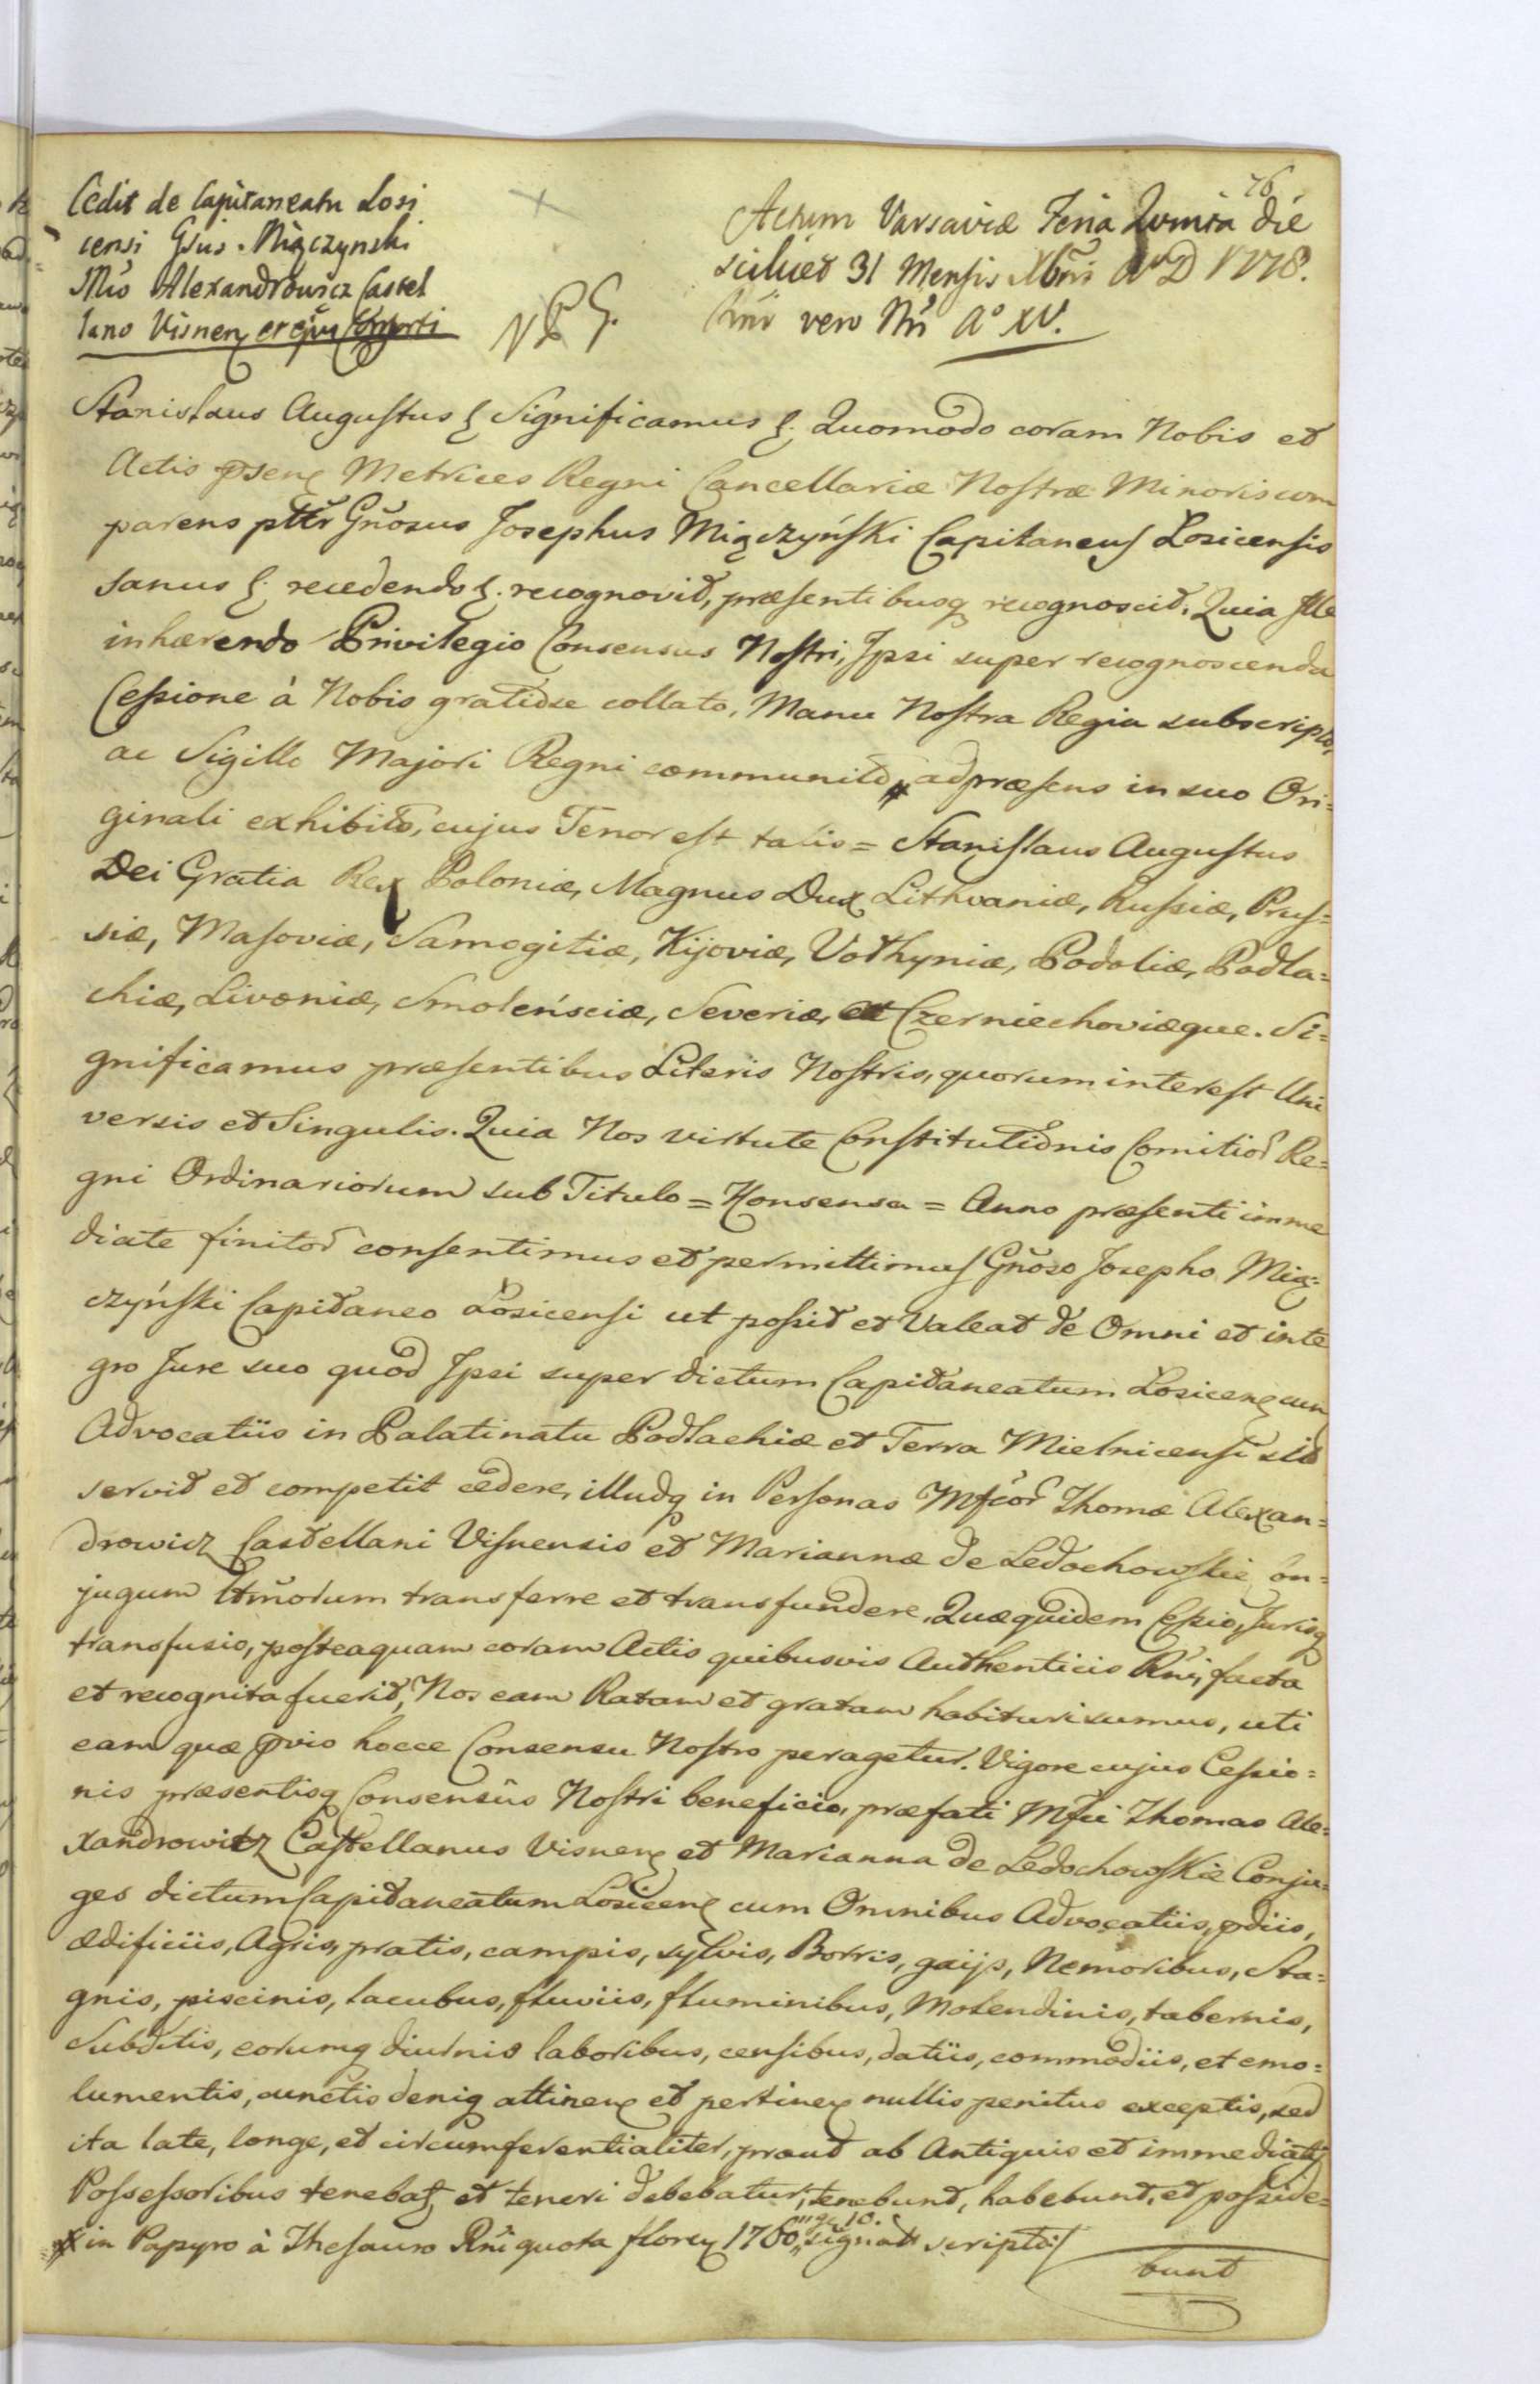 76
Cedit de Capitaneatu Losi
censi Gsus. Miączynski
Mco Alexandrowicz Castel
lano Visnen et ejus Consorti
NPG.
Actum Varsaviæ Feria Quinta die
scilicet 31 Mensis Xbris Aº D 1778.
Rni vero Nri Aº XV.
Stanislaus Augustus & Significamus &. Quomodo coram Nobis et
Actis psen Metrices Regni Cancellariæ Nostræ Minoris com
parens pttr Gñosus Josephus Miączyński Capitaneus Łosicensis
sanus &. recedendo &. recognovit, præsentibusq recognoscit. Quia Ille
inhærendo Privilegio Consensus Nostri, Ipsi super recognoscenda
Cessione à Nobis gratiose collato, Manu Nostra Regia subscripto,
ac Sigillo Majori Regni communito, adpræsens in suo Ori=
ginali exhibito, cujus Tenor est talis = Stanislaus Augustus
Dei Gratia Rex Poloniæ, Magnus Dux Lithvaniæ, Russiæ, Prus=
siæ, Masoviæ, Samogitiæ, Kijoviæ, Volhyniæ, Podoliæ, Podla=
chiæ, Livoniæ, Smoleńsciæ, Severiæ, Czerniechoviæque. Si=
gnificamus præsentibus Literis Nostris, quorum interest Uni
versis et Singulis. Quia Nos virtute Constitutionis Comitior Re=
gni Ordinariorum sub Titulo = Konsensa = Anno præsenti imme
diate finitor consentimus et permittimus Gñoso Josepho Mią=
czyński Capitaneo Łosicensi ut possit et Valeat de Omni et inte
gro Jure suo quod Ipsi super dictum Capitaneatum Łosicen cum
Advocatiis in Palatinatu Podlachiæ et Terra Mielnicensi sito
servit et competit cedere, illudq in Personas Mfcor Thomæ Alexan=
drowicz Castellani Visnensis et Mariannæ de Ledochowskie Con=
jugum transferre et transfundere. Quæquidem Cessio, Jurisq
transfusio, posteaquam coram Actis quibusvis Authenticis Rni, facta
et recognita fuerit, Nos eam Ratam et gratam habituri sumus, uti
eam quæ pvio hocce Consensu Nostro peragetur. Vigore cujus Cessio=
nis præsentisq Consensûs Nostri beneficio, præfati Mfci Thomas Ale=
xandrowicz Castellanus Visnen et Marianna de Ledochowskie Conju=
ges dictum Capitaneatum Łosicen cum Omnibus Advocatiis, pdiis,
ædificiis, Agris, pratis, campis, sylvis, Borris, gaijs, Nemoribus, Sta=
gnis, piscinis, lacubus, fluviis, fluminibus, Molendinis, tabernis,
Subditis, eorumq diurnis laboribus, censibus, datiis, commodiis, et emo=
lumentis, cunctis deniq attinen et pertinen nullis penitus exceptis, sed
ita late, longe, et circumferentialiter, prout ab Antiquis et immediatis
Possessoribus tenebat et teneri debebatur, tenebunt, habebunt, et posside=
in Papyro à Thesauro Rñi quota floren 1760 gr 10. signato scripto
bunt